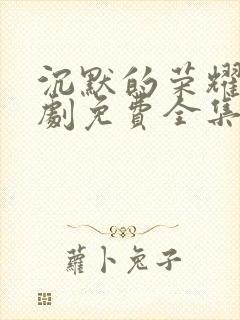 沉默的荣耀
劇免費全集
蘿卜兔子